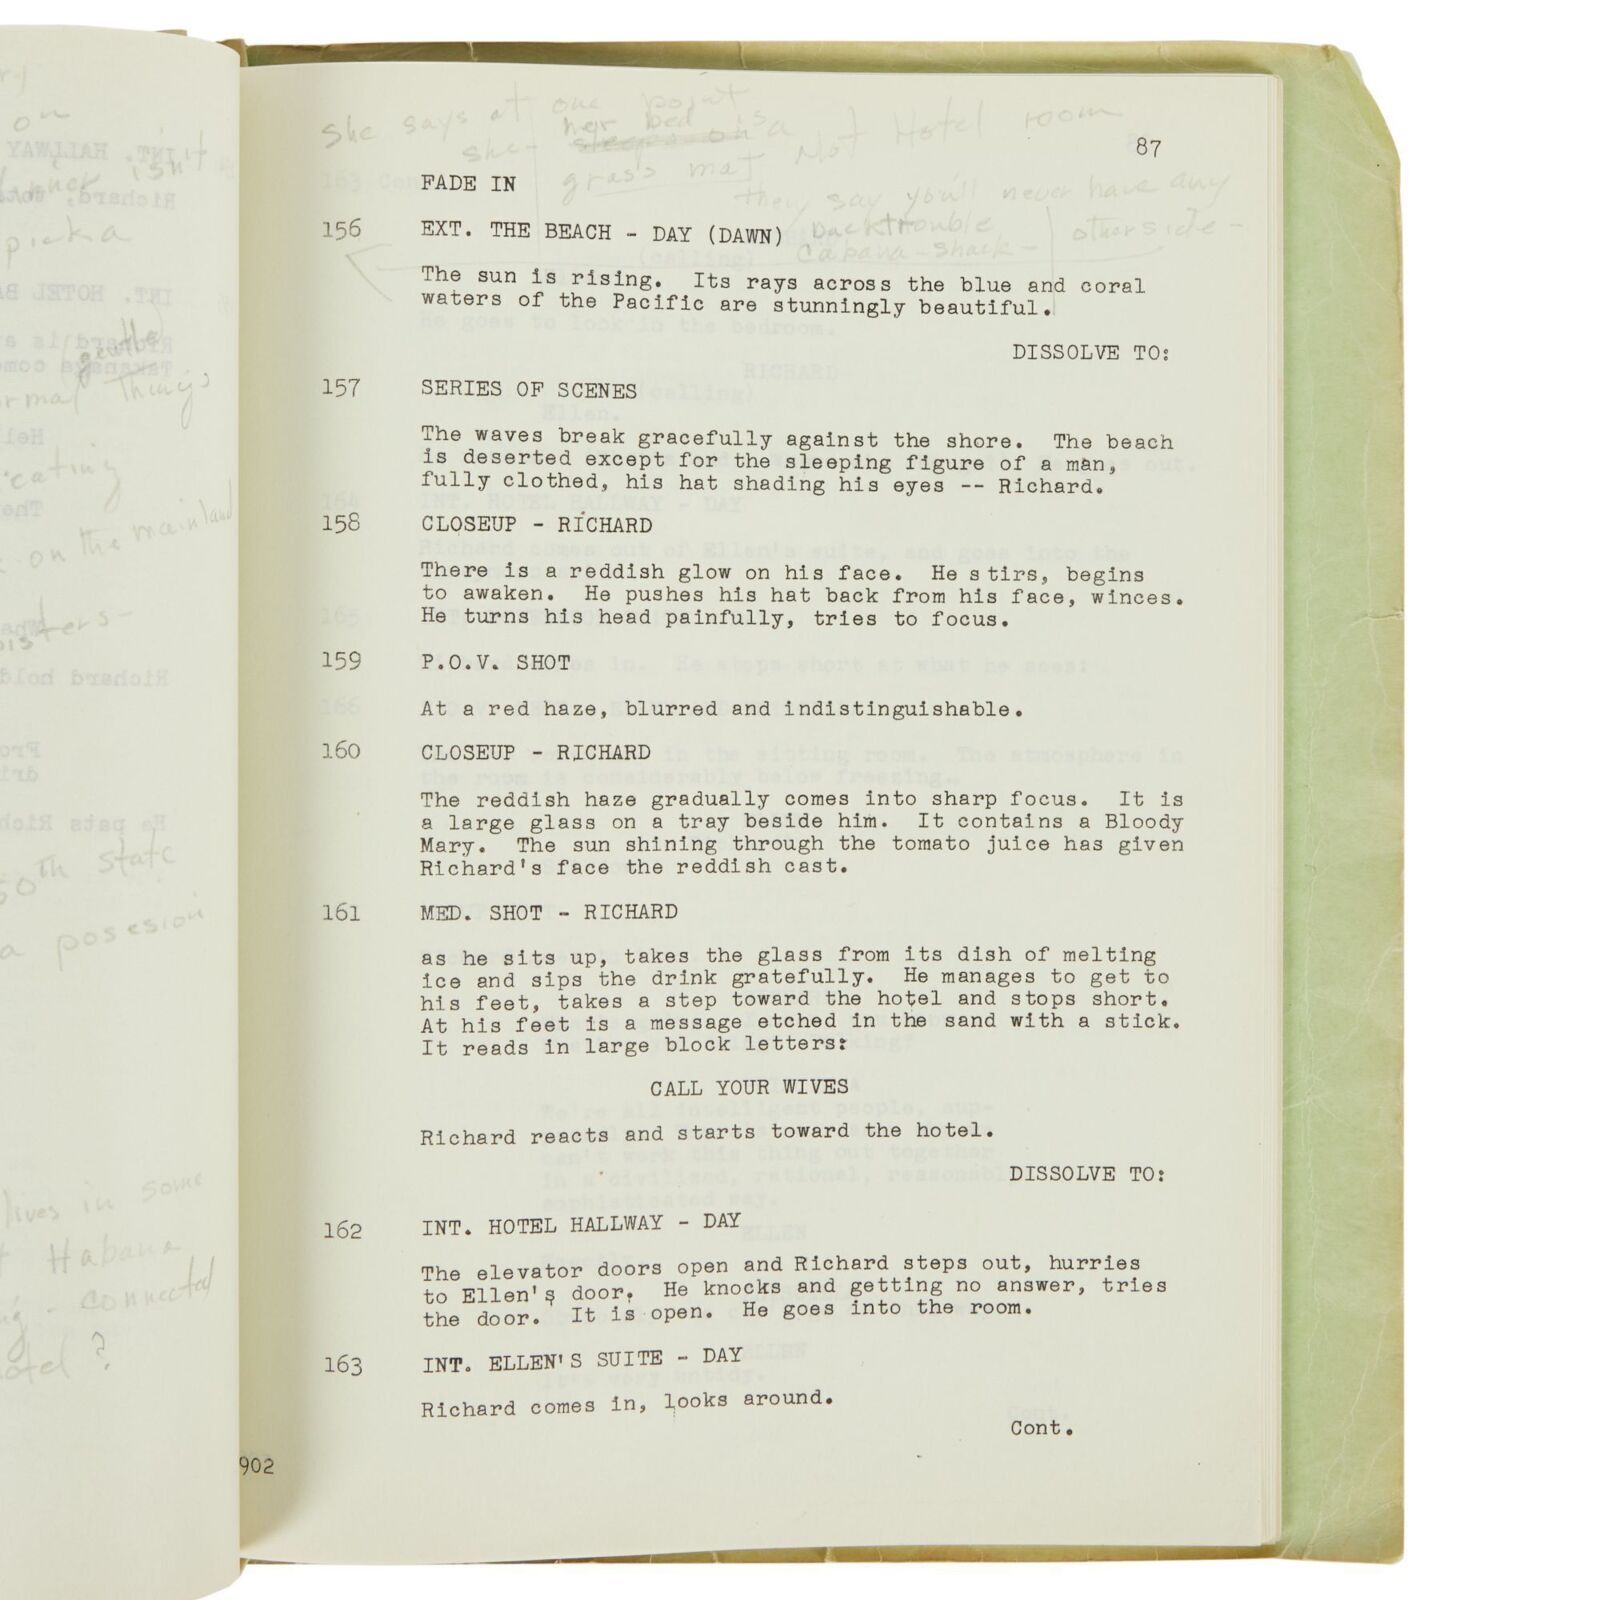 on
isn't
picka
gentle
things
eating
on the mainland
50th state
a posesion
lives in some
Habana
connected
?
she says at one point
her bed is
she - sleeps on a Not Hotel room
grass mat
87
they say you'll never have any
FADE IN
backtrouble otherside -
156 EXT. THE BEACH - DAY (DAWN)
cabana - shack -
The sun is rising. Its rays across the blue and coral
waters of the Pacific are stunningly beautiful.
DISSOLVE TO:
157 SERIES OF SCENES
The waves break gracefully against the shore. The beach
is deserted except for the sleeping figure of a man,
fully clothed, his hat shading his eyes -- Richard.
158 CLOSEUP - RICHARD
There is a reddish glow on his face. He stirs, begins
to awaken. He pushes his hat back from his face, winces.
He turns his head painfully, tries to focus.
159 P.O.V. SHOT
At a red haze, blurred and indistinguishable.
160 CLOSEUP - RICHARD
The reddish haze gradually comes into sharp focus. It is
a large glass on a tray beside him. It contains a Bloody
Mary. The sun shining through the tomato juice has given
Richard's face the reddish cast.
161 MED. SHOT - RICHARD
as he sits up, takes the glass from its dish of melting
ice and sips the drink gratefully. He manages to get to
his feet, takes a step toward the hotel and stops short.
At his feet is a message etched in the sand with a stick.
It reads in large block letters:
CALL YOUR WIVES
Richard reacts and starts toward the hotel.
DISSOLVE TO:
162 INT. HOTEL HALLWAY - DAY
The elevator doors open and Richard steps out, hurries
to Ellen's door. He knocks and getting no answer, tries
the door. It is open. He goes into the room.
163 INT. ELLEN'S SUITE - DAY
Richard comes in, looks around.
Cont.
902